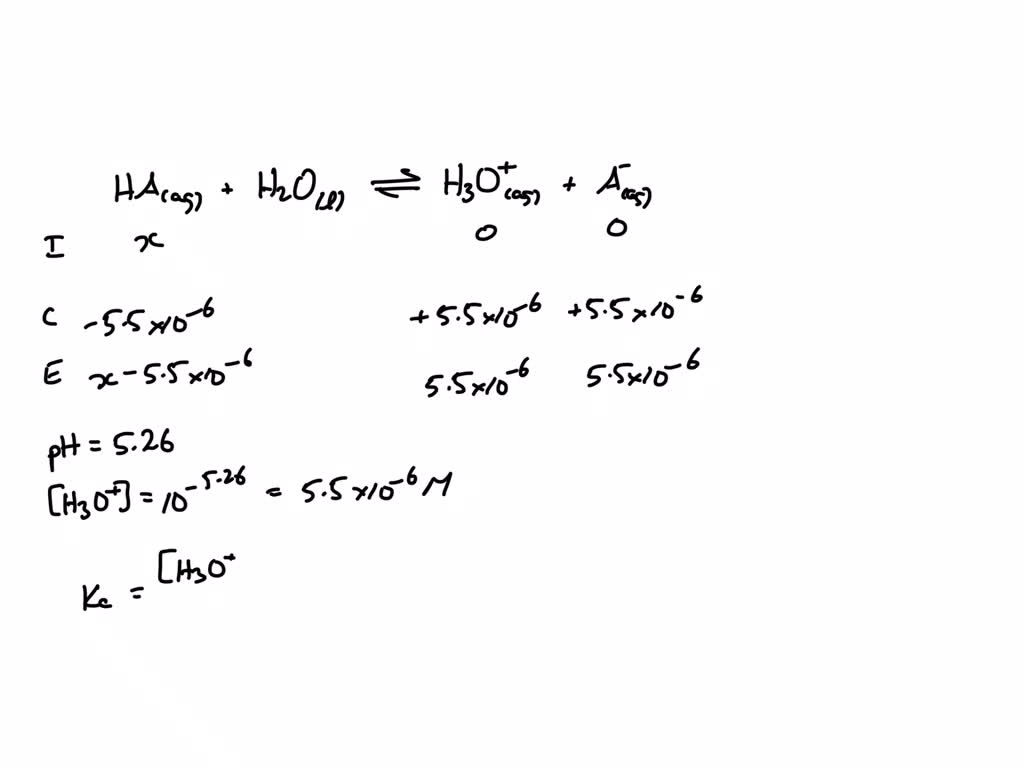 HA(aq) + H2O(l) ⇌ H3O⁺(aq) + A⁻(aq)
I x 0 0
C -5.5×10⁻⁶ +5.5×10⁻⁶ +5.5×10⁻⁶
E x-5.5×10⁻⁶ 5.5×10⁻⁶ 5.5×10⁻⁶
pH = 5.26
[H3O⁺] = 10⁻⁵·²⁶ = 5.5×10⁻⁶ M
[H3O⁺
Kc =